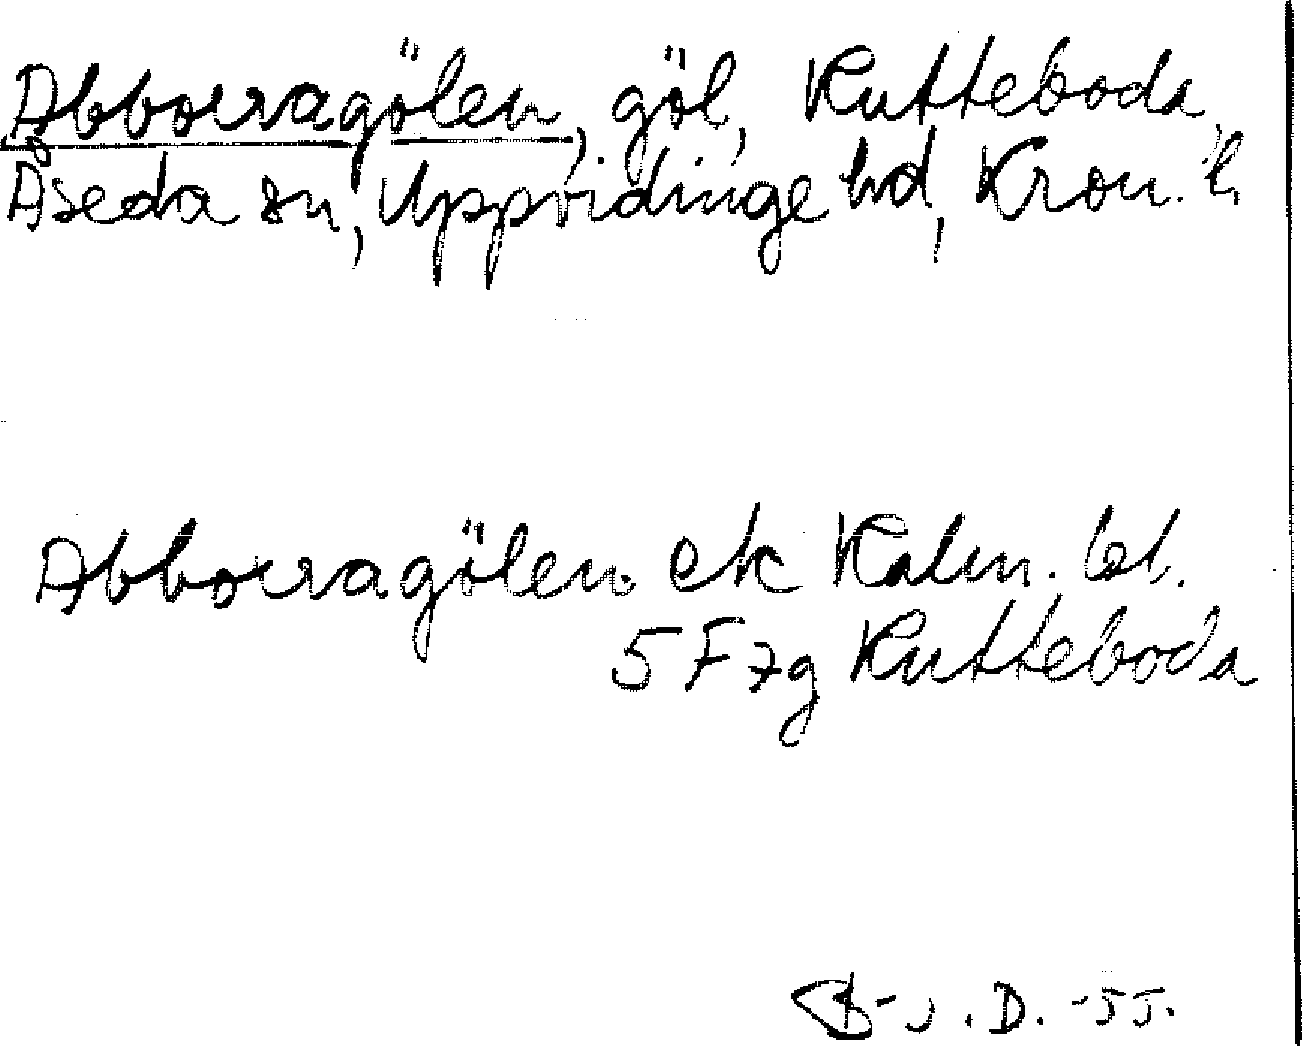 Abborragölen, göl, Rutteboda,
Åseda sn, Uppvidinge hd, Kron. l.
Abborragölen ek Kalm. bl.
5 F 7g Rutteboda
B-J. D. -55.